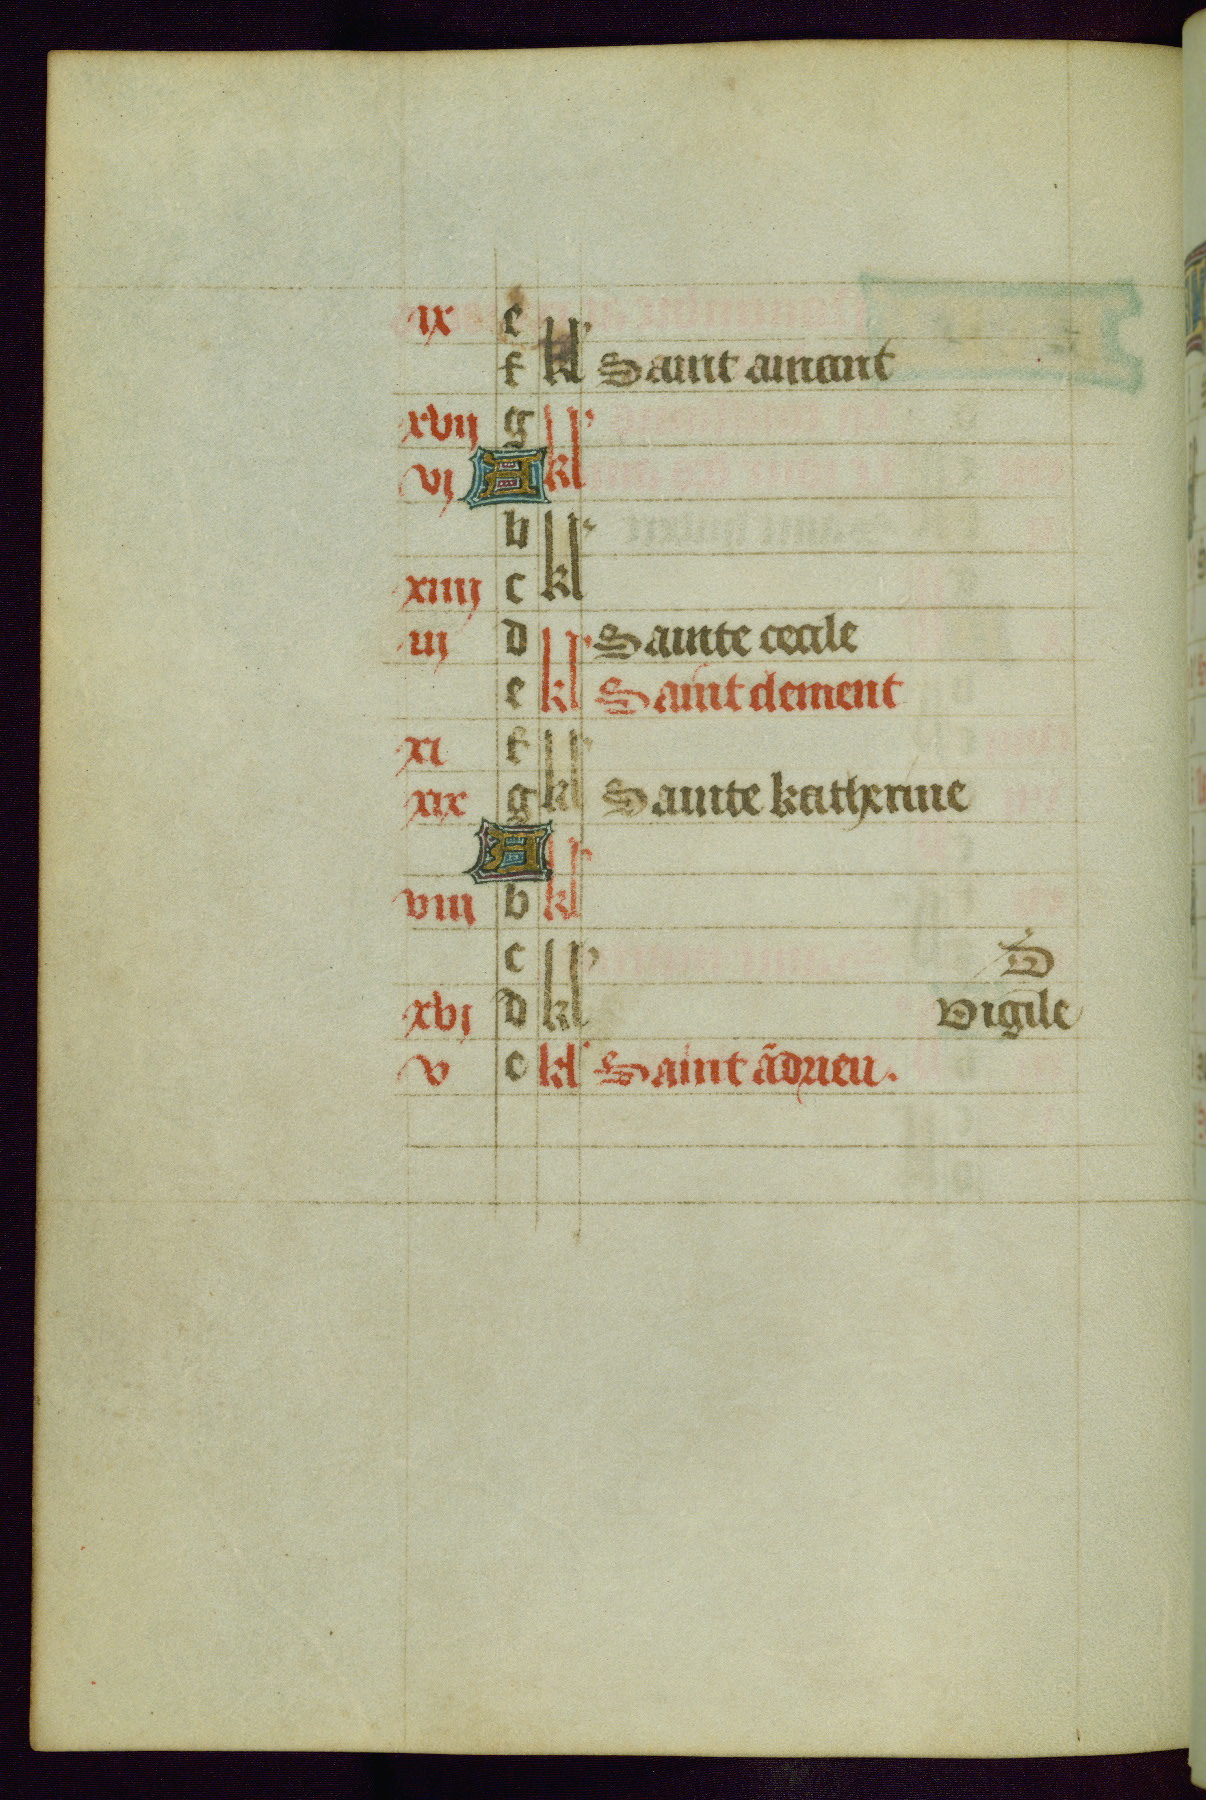 ix e
f kl Saint amant
xvij g
vj A kl
b
xiiij c kl
iij d Sainte cecile
e kl Saint clement
xi f
xix g kl Sainte katherine
A
viij b kl
c D
xvj d kl vigile
v e kl Saint ãdrieu.